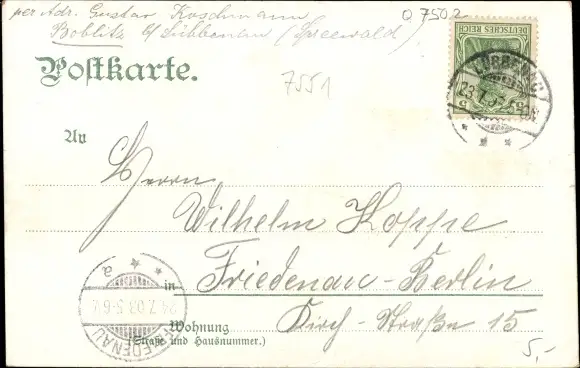 per Adr. Gustav Koschmann
Boblitz b/ Lübbenau (Spreewald)
O 7502
Postkarte.
7551
DEUTSCHES REICH
5
LÜBBENAU
23.7.03
An
Herrn
Wilhelm Koppe
in Friedenau-Berlin
Wohnung Kirch-Straße 15
(Straße und Hausnummer.)
FRIEDENAU
24.7.03.5-6V.
a
5,-